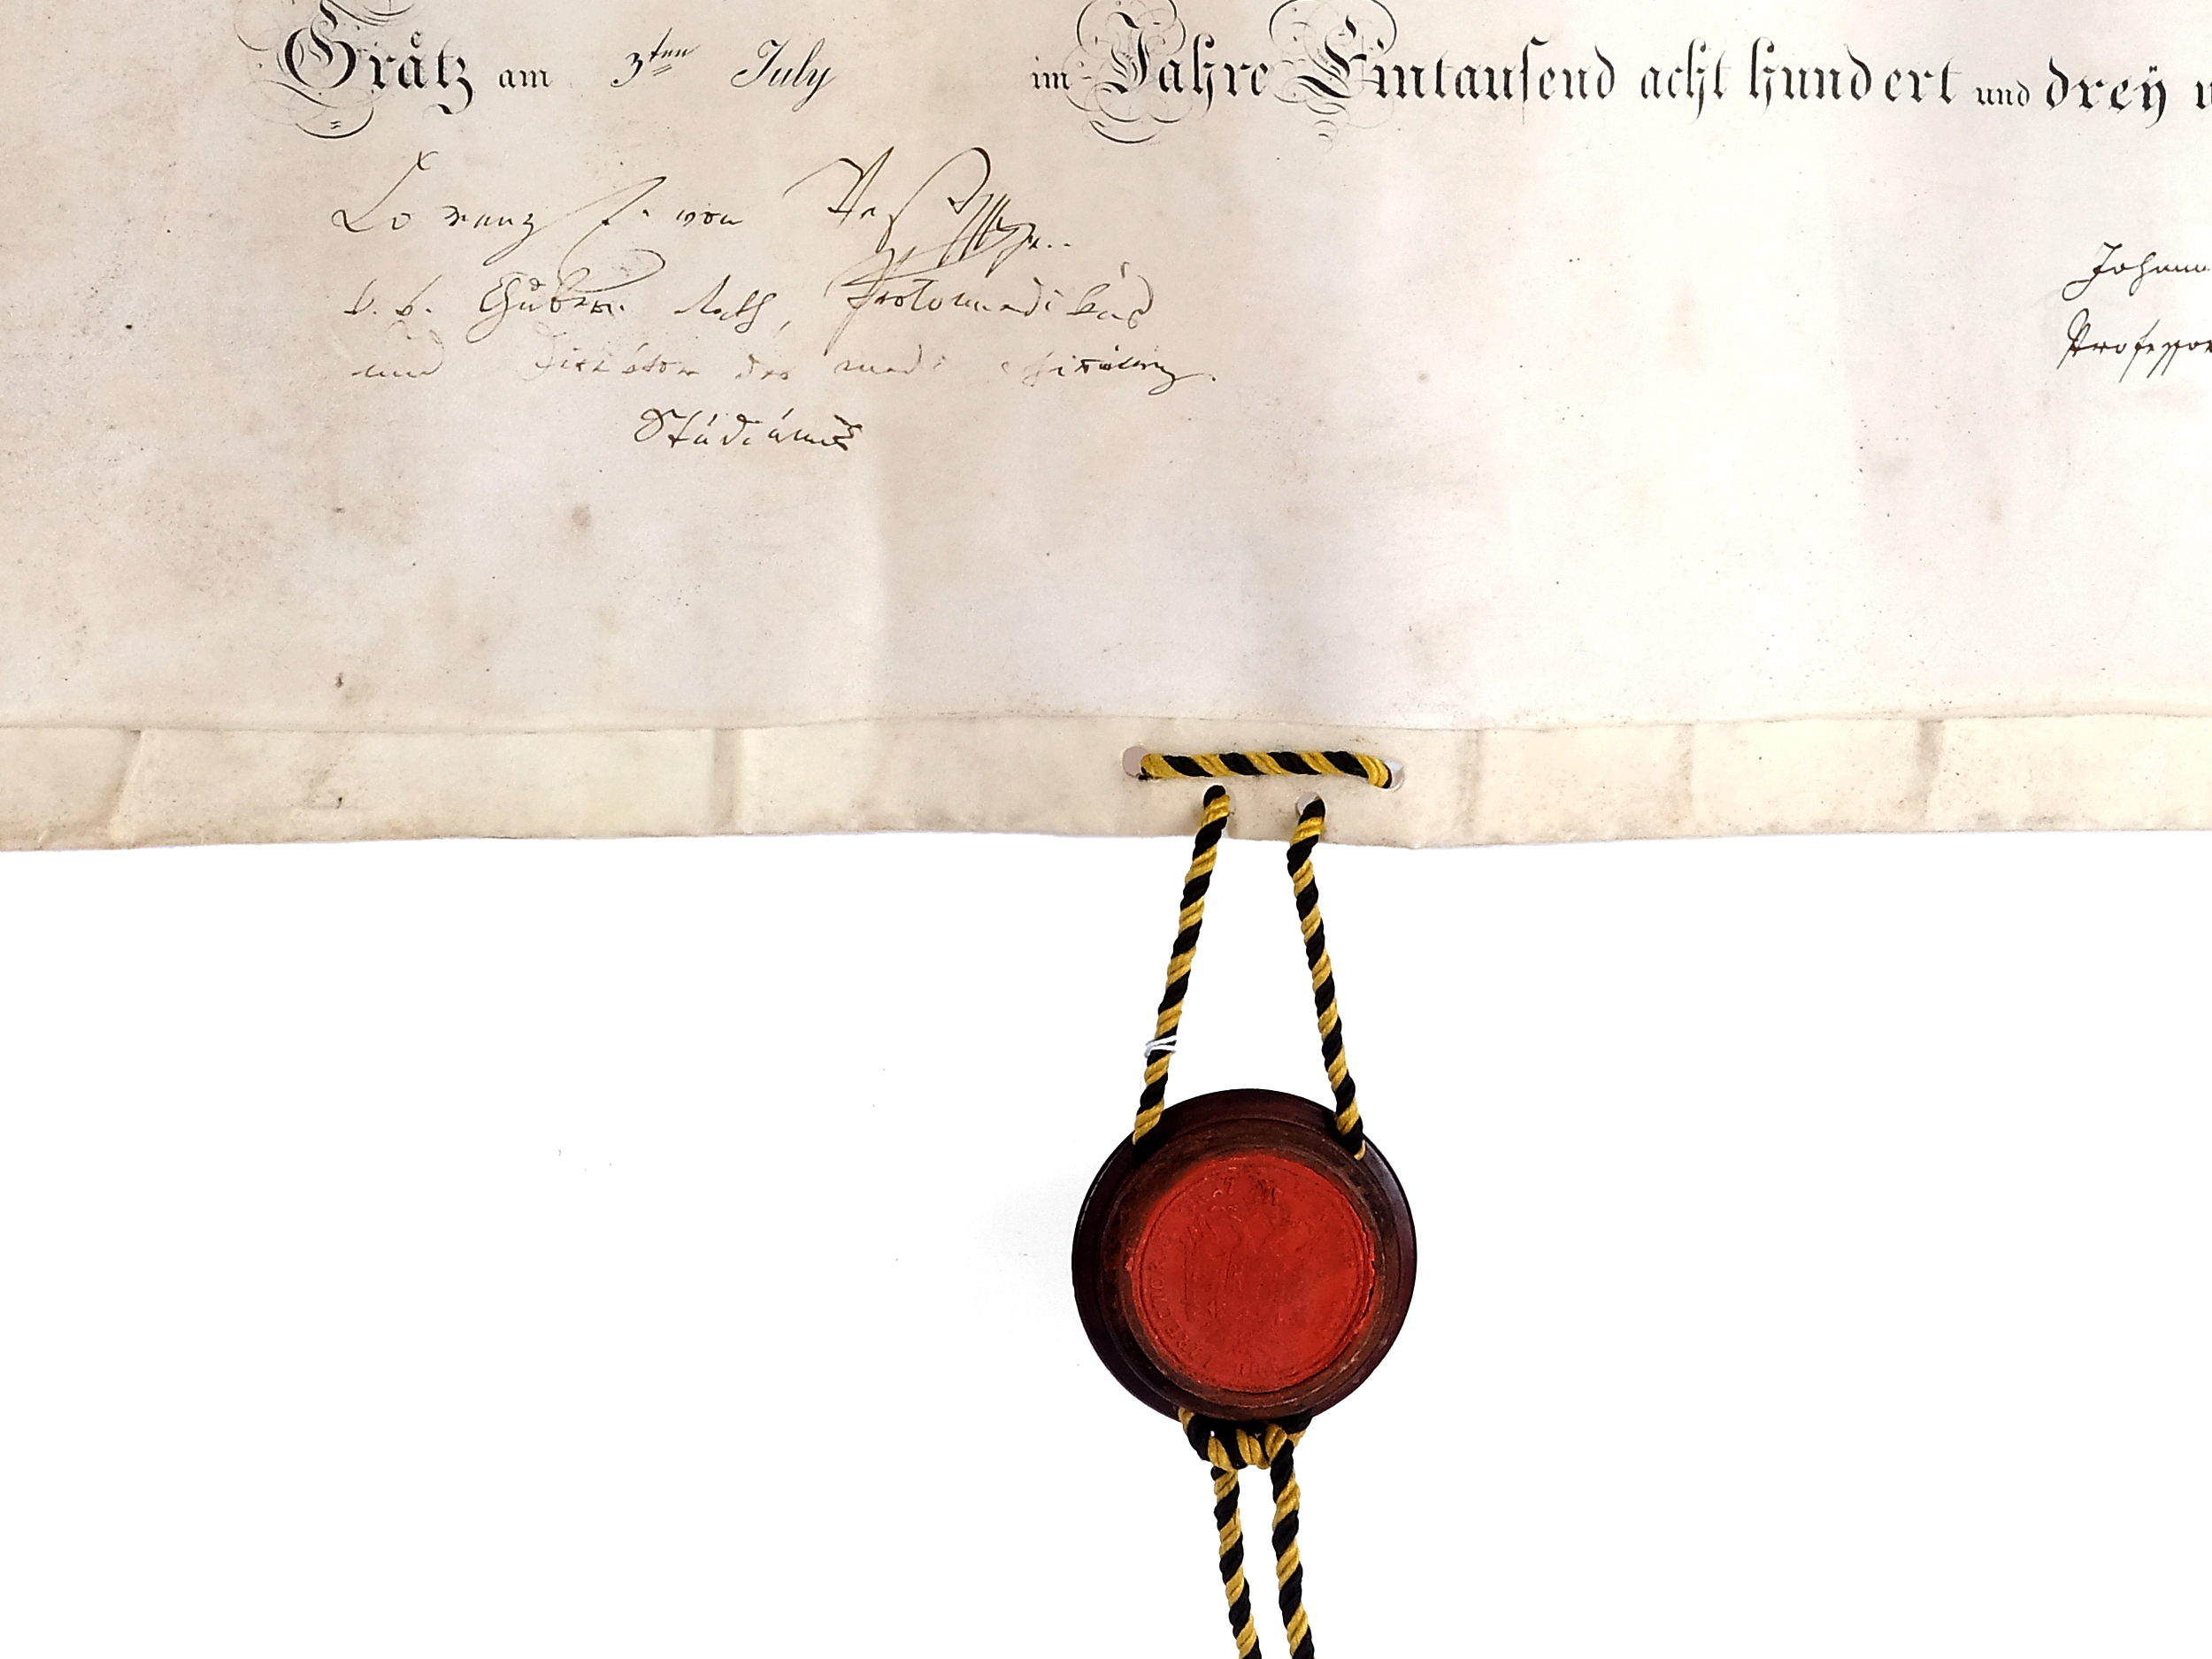 Grätz am 3ten July im Jahre Eintausend acht hundert und dreÿ
Lorenz E. von Vest
k. k. Gubern. Rath, Protomedikus
und Direktor des medi. chirurg.
Studiums
Johann
Professor